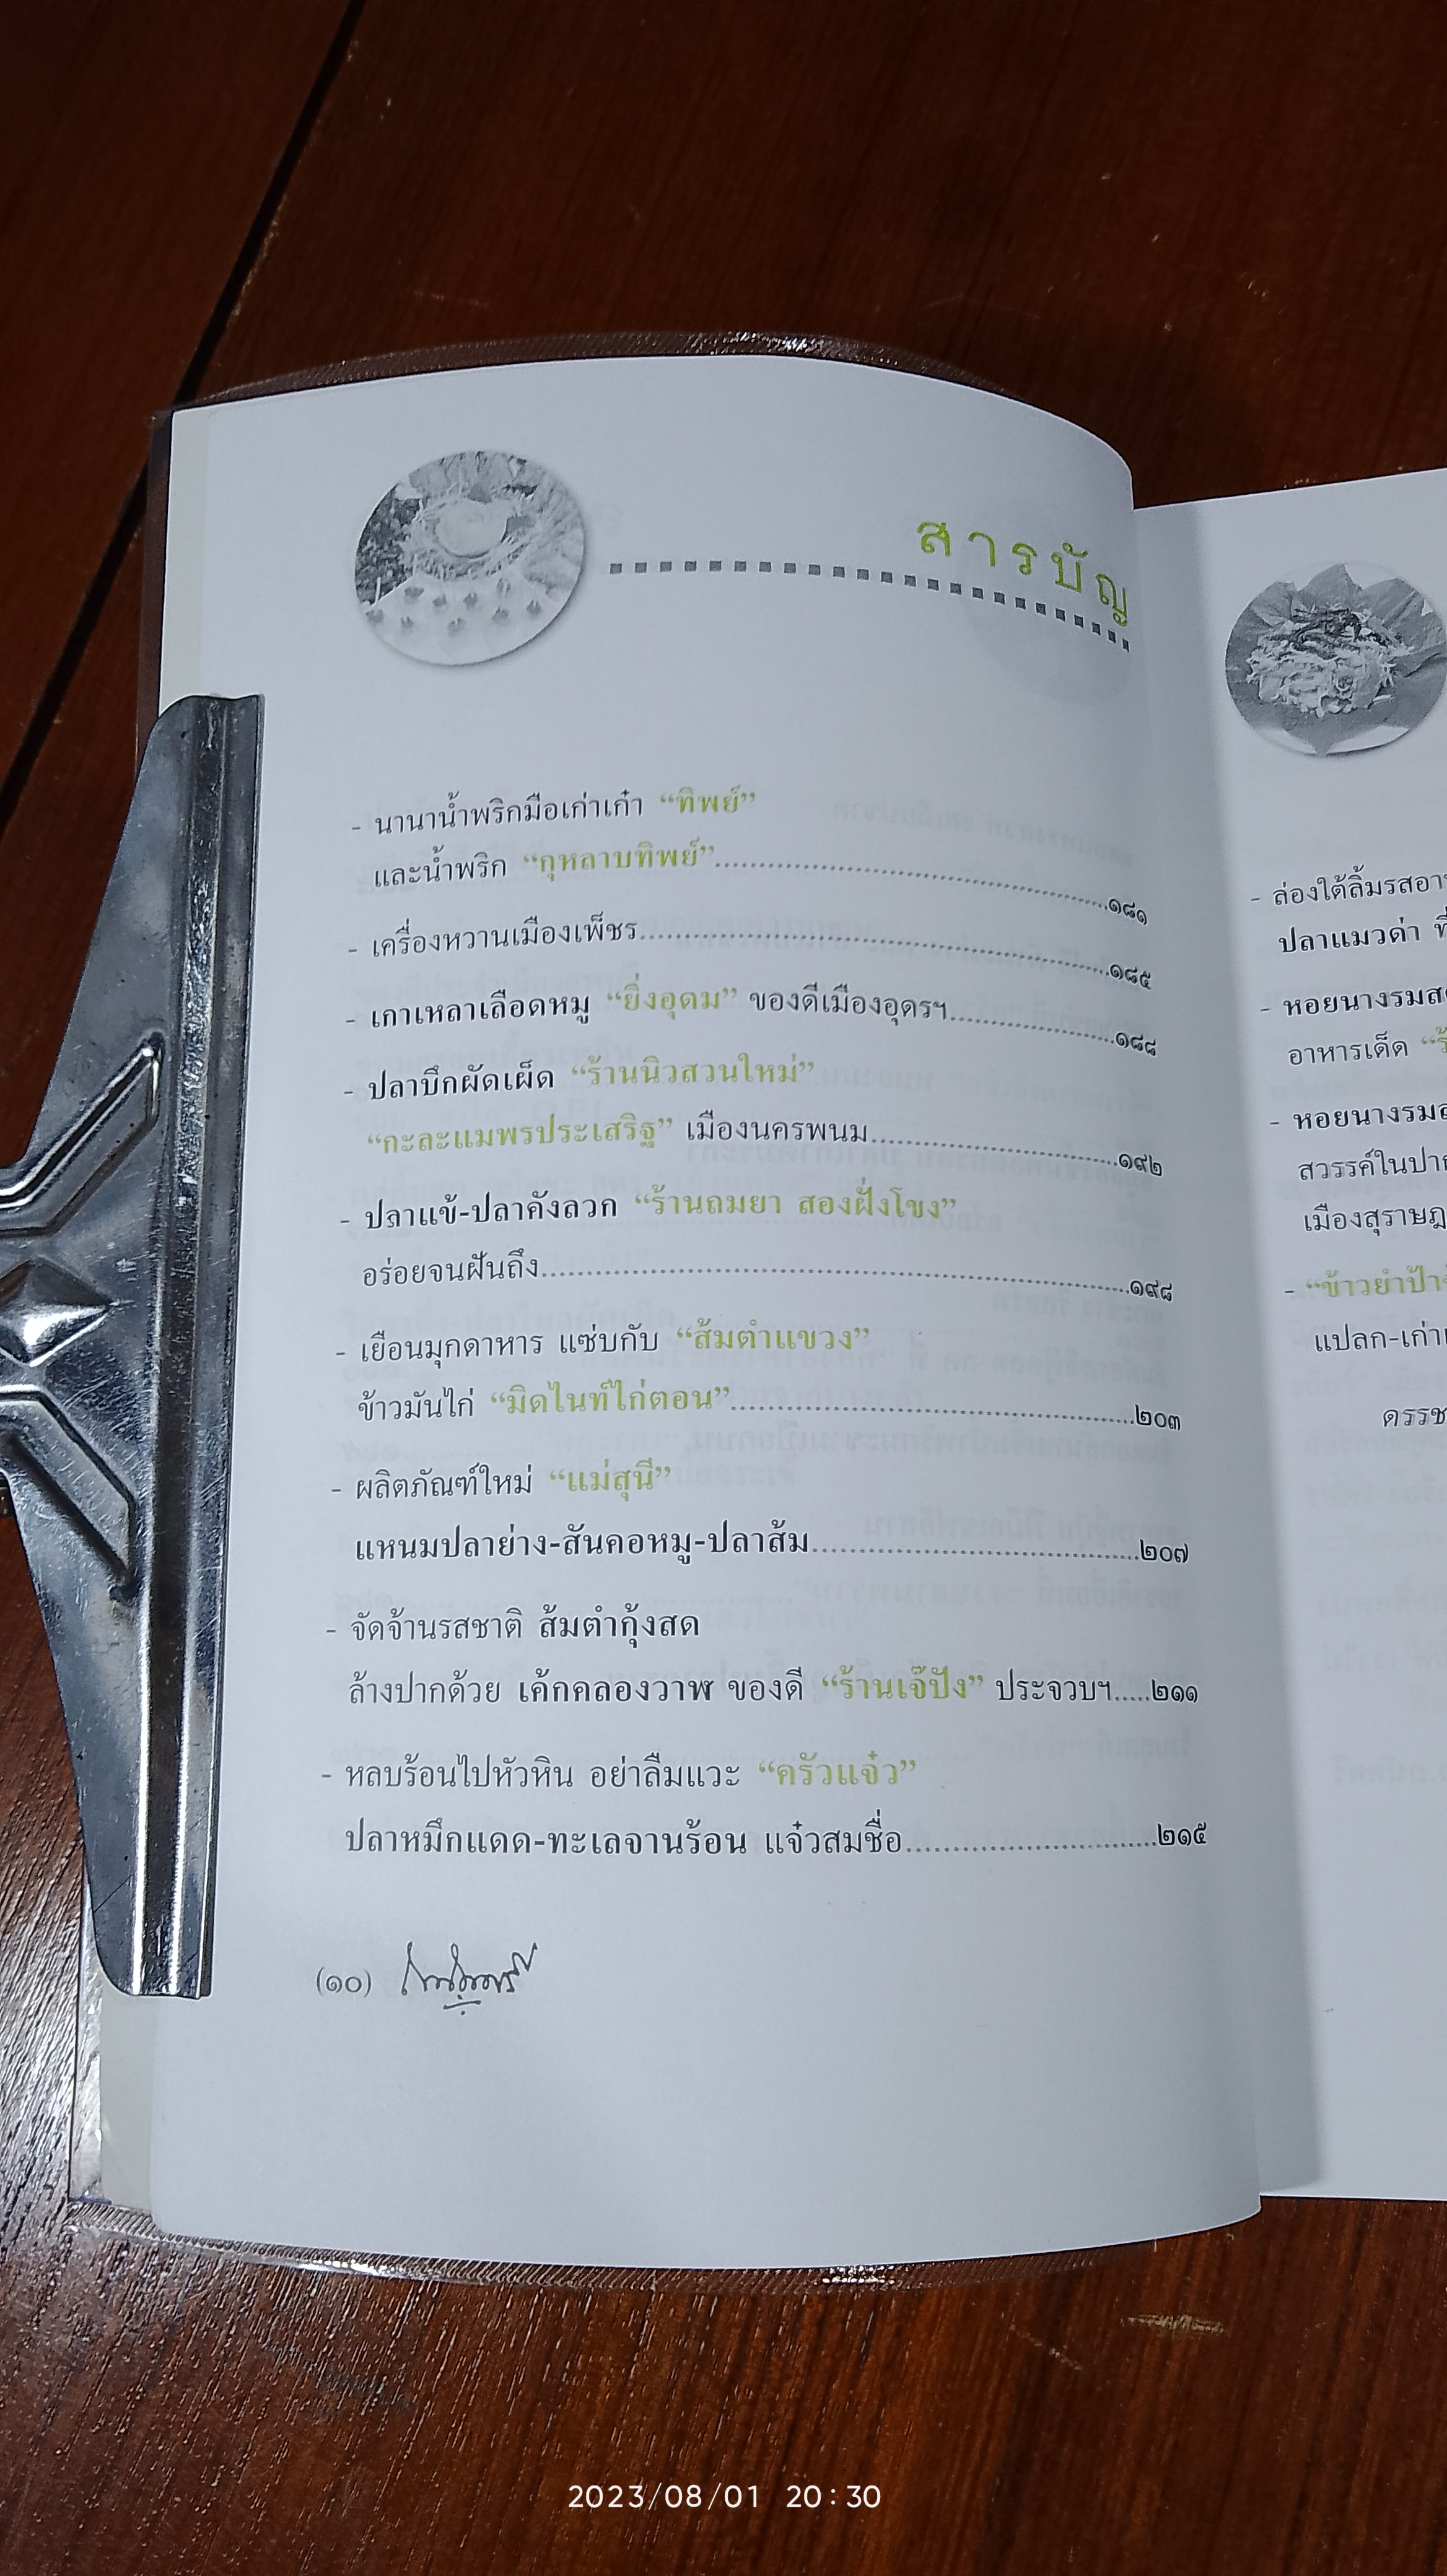 สารบัญ
- นานาน้ำพริกมือเก่าเก๋า “ทิพย์”
และน้ำพริก “กุหลาบทิพย์”..........๑๘๑
- เครื่องหวานเมืองเพ็ชร..........๑๘๕
- เกาเหลาเลือดหมู “ยิ่งอุดม” ของดีเมืองอุดรฯ..........๑๘๘
- ปลาบึกผัดเผ็ด “ร้านนิวสวนใหม่”
“กะละแมพรประเสริฐ” เมืองนครพนม..........๑๙๒
- ปลาแข้-ปลาคังลวก “ร้านถมยา สองฝั่งโขง”
อร่อยจนฝันถึง..........๑๙๘
- เยือนมุกดาหาร แซ่บกับ “ส้มตำแขวง”
ข้าวมันไก่ “มิดไนท์ไก่ตอน”..........๒๐๓
- ผลิตภัณฑ์ใหม่ “แม่สุนี”
แหนมปลาย่าง-สันคอหมู-ปลาส้ม..........๒๐๗
- จัดจ้านรสชาติ ส้มตำกุ้งสด
ล้างปากด้วย เค้กคลองวาฬ ของดี “ร้านเจ๊ปัง” ประจวบฯ.....๒๑๑
- หลบร้อนไปหัวหิน อย่าลืมแวะ “ครัวแจ๋ว”
ปลาหมึกแดด-ทะเลจานร้อน แจ๋วสมชื่อ..........๒๑๕
(๑๐)
- ล่องใต้ลิ้มรสอา
ปลาแมวดำ ที่
- หอยนางรมส
อาหารเด็ด “ร้
- หอยนางรม
สวรรค์ในปา
เมืองสุราษฎ
- “ข้าวยำป้า
แปลก-เก่า
ดรรช
2023/08/01 20:30